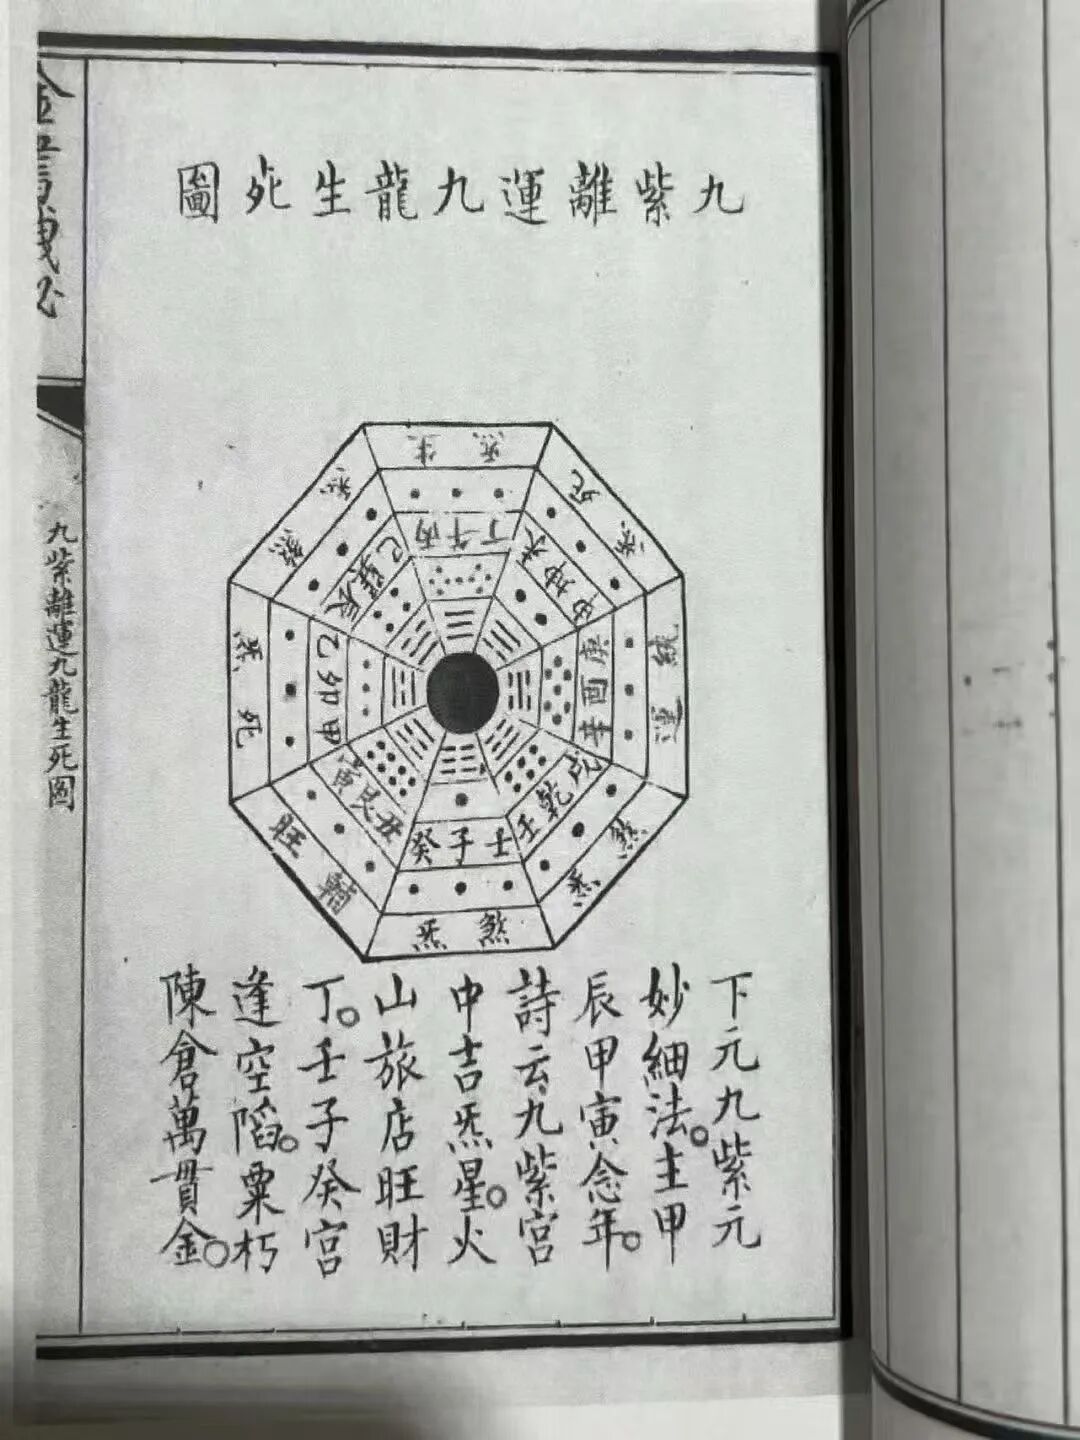 九紫離運九龍生死圖
生 炁
死 炁
統 運
煞 炁
炁 煞
旺 輔
炁 死
煞 炁
丙午丁
未坤申
庚酉辛
戌乾壬
壬子癸
丑艮寅
甲卯乙
辰巽巳
下元九紫元
妙細法。主甲
辰甲寅念年。
詩云、九紫宮
中吉炁星。火
山旅店旺財
丁。壬子癸宮
逢空陷。粟朽
陳倉萬貫金。
九紫離運九龍生死圖